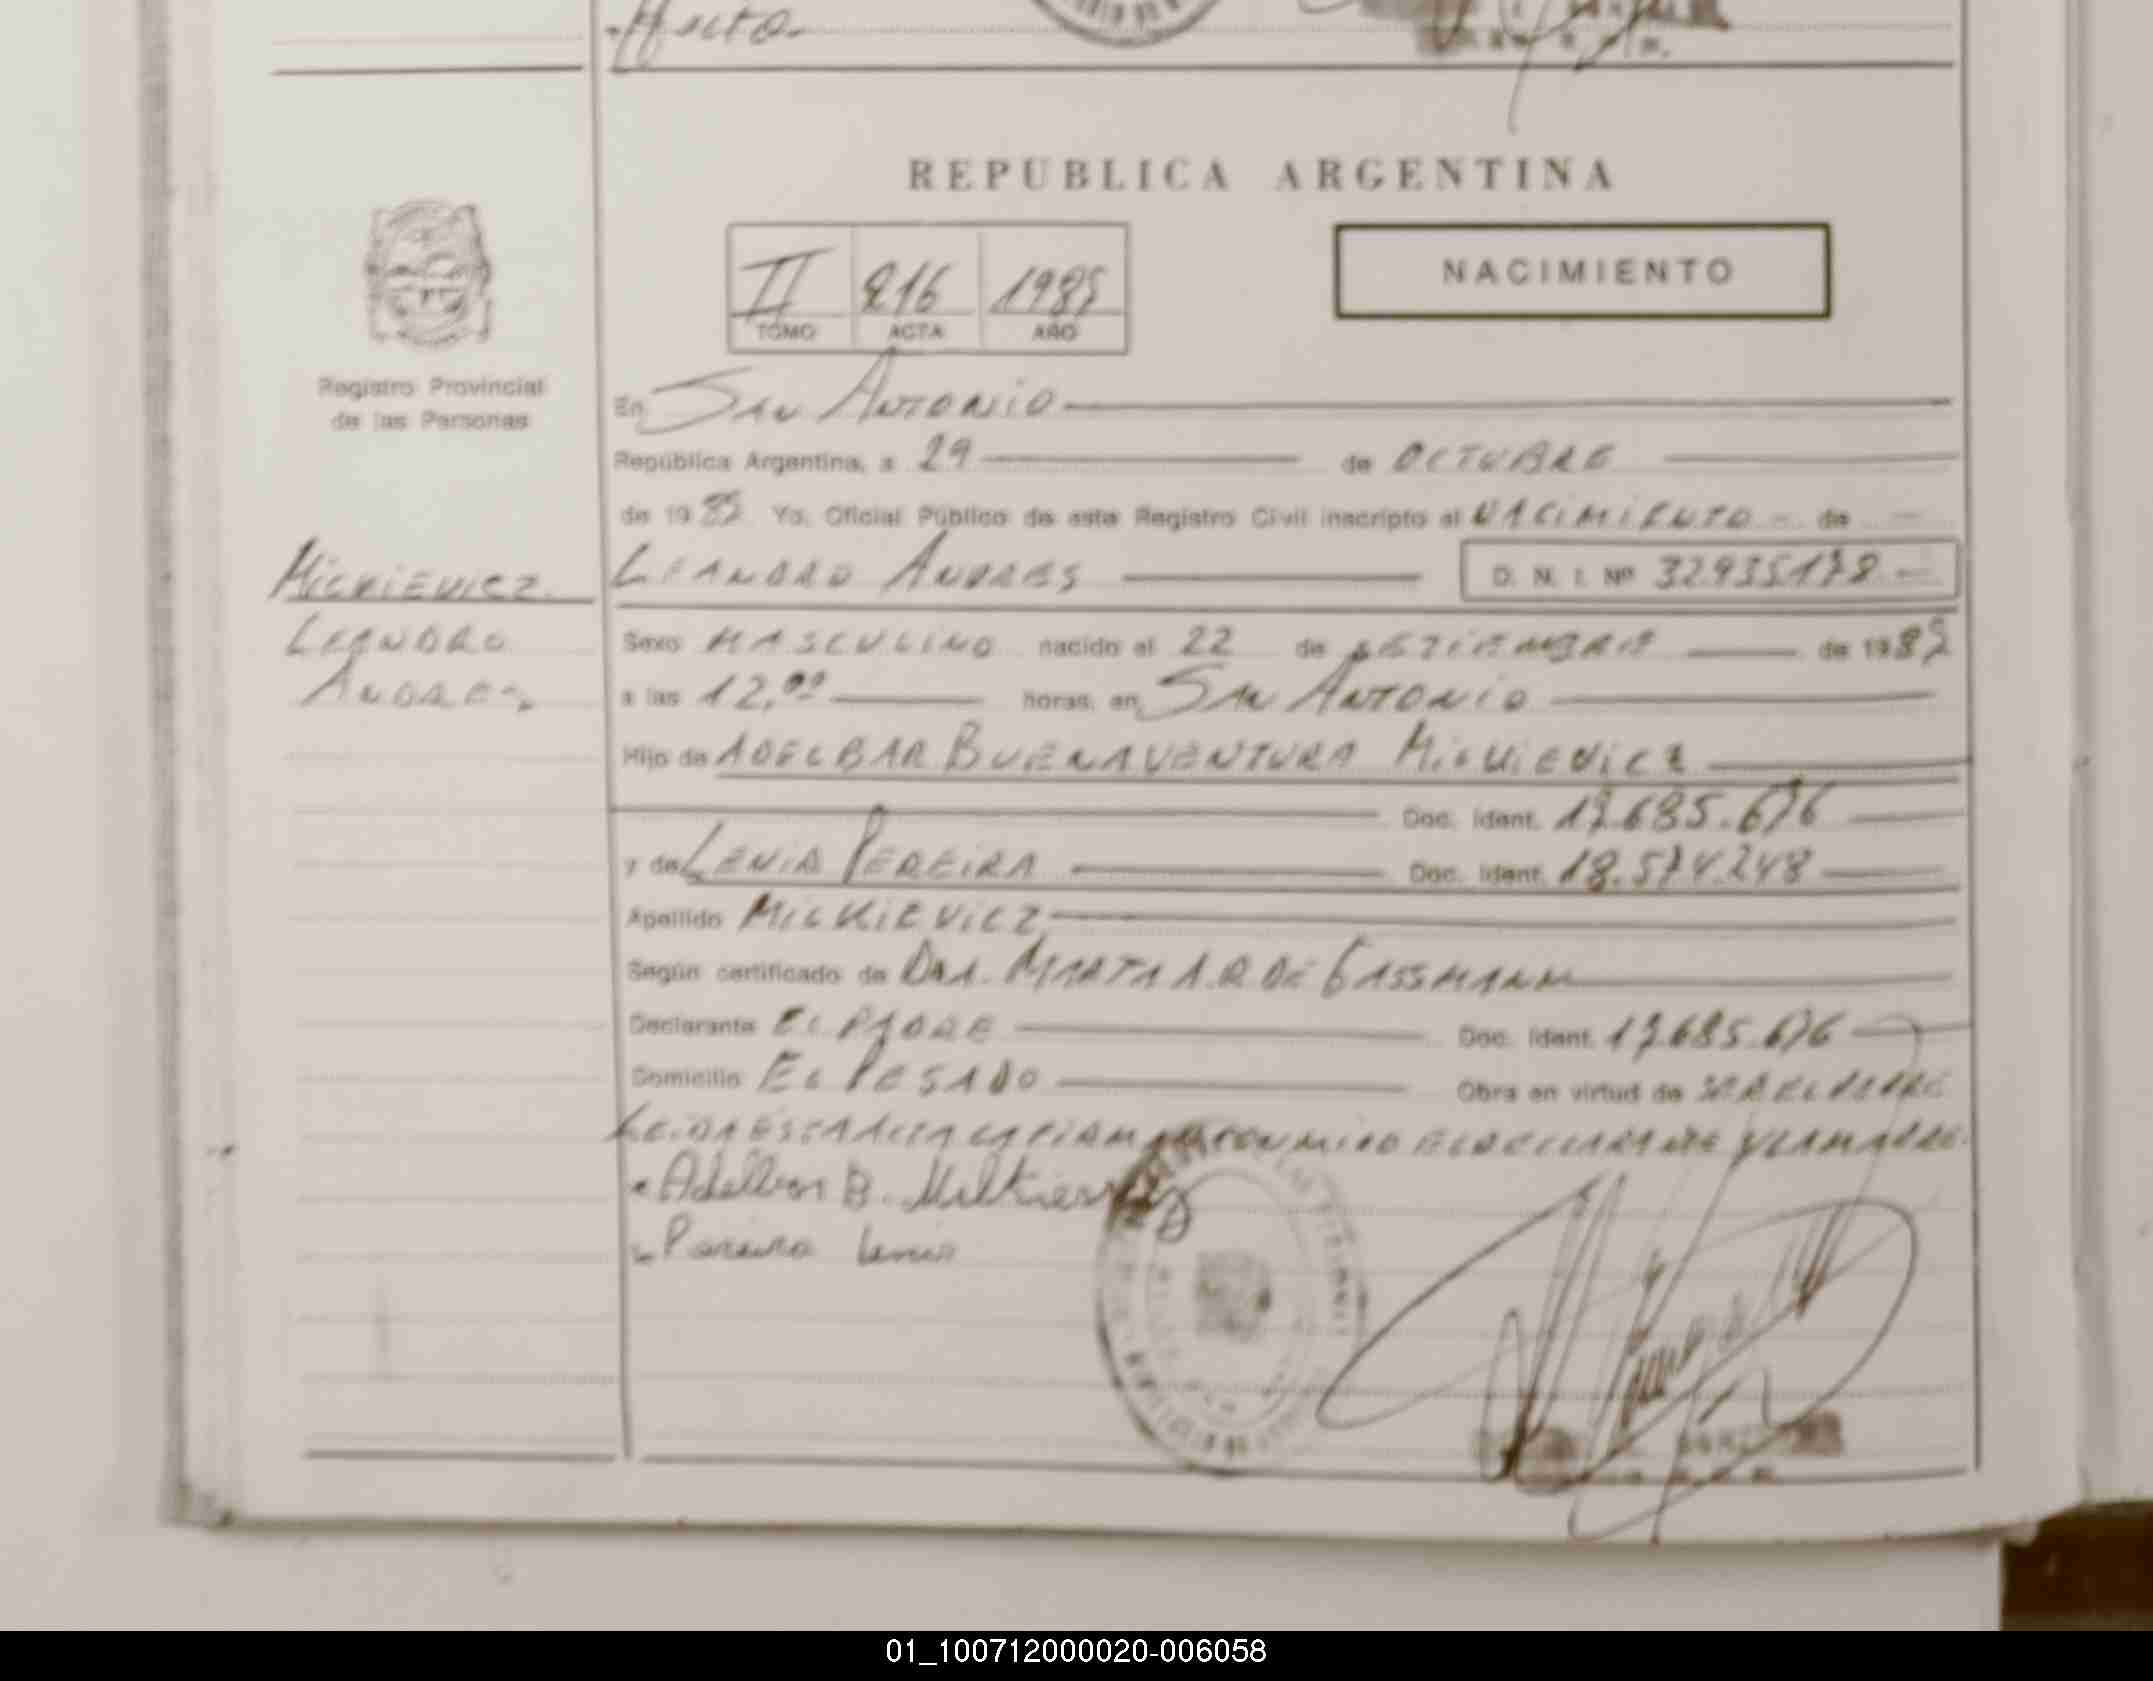 REPUBLICA ARGENTINA
II 216
TOMO ACTA AÑO
NACIMIENTO
Registro Provincial
de las Personas
En SAN ANTONIO
República Argentina, a 29 de OCTUBRE
de 19 Yo, Oficial Público de este Registro Civil inscripto el NACIMIENTO de
MICKIEVICZ
LEANDRO ANDRES D. N. I. Nº
LEANDRO
ANDRES
Sexo MASCULINO nacido el 22 de SETIEMBRE de 19
a las 12,00 horas, en SAN ANTONIO
Hijo de ADELBAR BUENAVENTURA MICKIEVICZ
Doc. Ident. 17.685.676
y de LENIR PEREIRA Doc. Ident. 18.574.248
Apellido MICKIEVICZ
Según certificado de DRA. MARTA A.R. DE GASSMANN
Declarante EL PADRE Doc. Ident. 17.685.676
Domicilio EL PESADO Obra en virtud de SER EL PADRE
LEIDA ESTA ACTA LA FIRMAN CONMIGO EL DECLARANTE Y LA MADRE.
Adelbar B.
Pereira Lenir
01_100712000020-006058